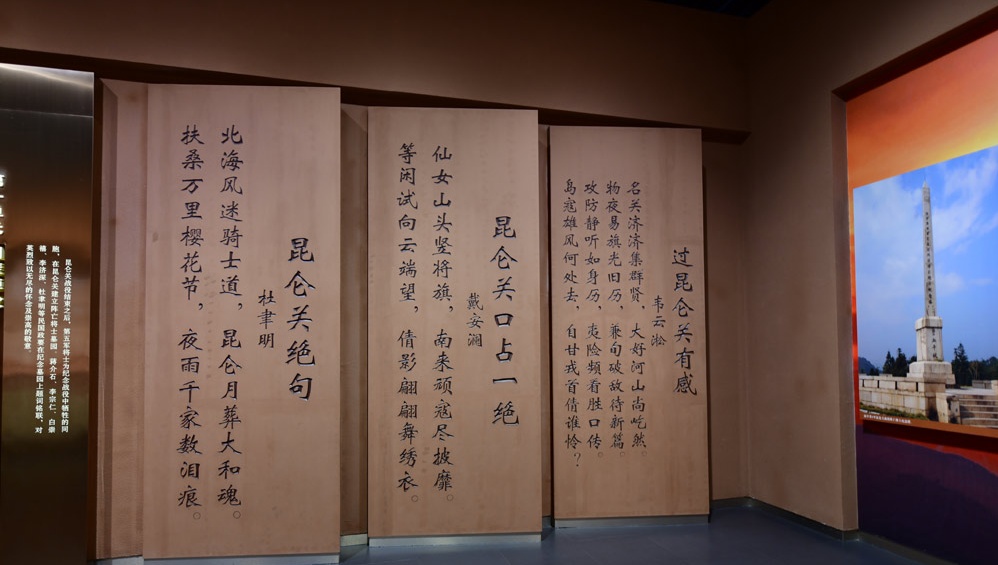 过昆仑关有感
韦云淞
名关济济集群贤，大好河山尚屹然。
物夜易旗光旧历，兼旬破敌待新篇。
攻防静听如身历，夷险频看胜口传。
岛寇雄风何处去，自甘戎首倩谁怜？
昆仑关口占一绝
戴安澜
仙女山头竖将旗，南来顽寇尽披靡。
等闲试向云端望，倩影翩翩舞绣衣。
昆仑关绝句
杜聿明
北海风迷骑士道，昆仑月葬大和魂。
扶桑万里樱花节，夜雨千家数泪痕。
昆仑关战役结束之后，第五军将士为纪念战役中牺牲的同
胞，在昆仑关建立阵亡将士墓园，蒋介石、李宗仁、白崇
禧、李济深、杜聿明等民国政要在纪念墓园上题词铭联，对
英烈致以无尽的怀念及崇高的敬意。